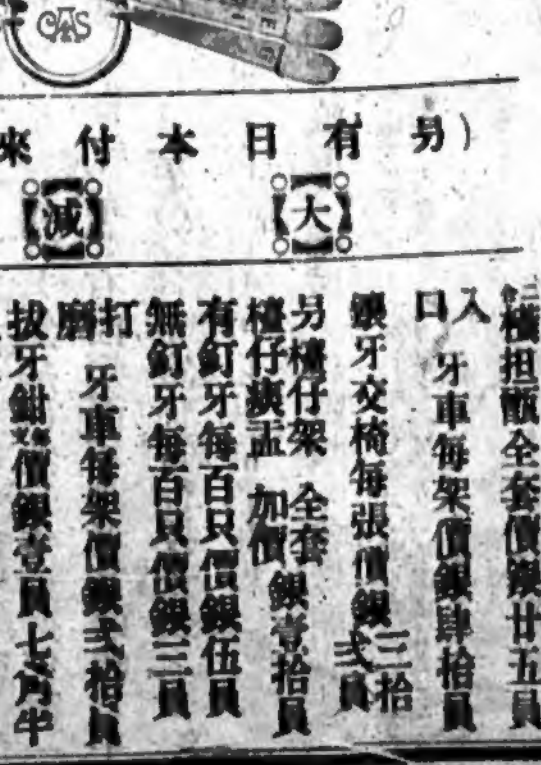 CAS
另有日本付來
大減
全套價銀廿五員
入口牙車每架價銀肆拾員
鑲牙交椅每張價銀三拾弍員
另檯仔架全套
檯仔痰盂加價銀壹拾員
有釘牙每百只價銀伍員
無釘牙每百只價銀三員
打磨牙車每架價銀弍拾員
拔牙鉗價銀壹員七角半